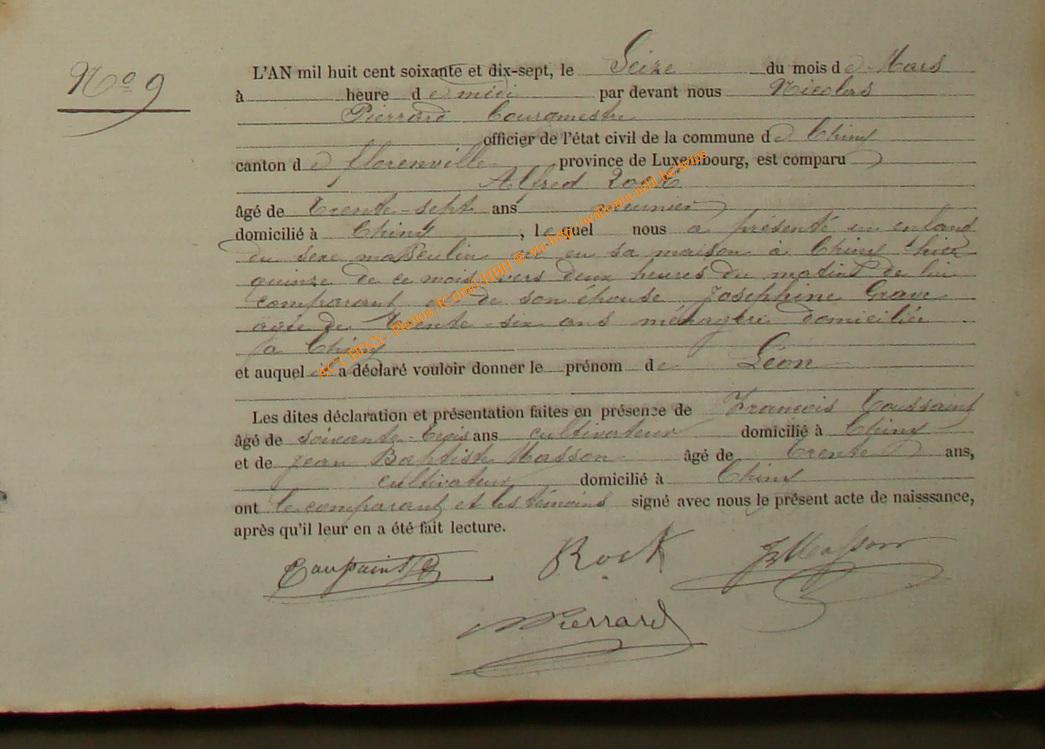 No 9
L'AN mil huit cent soixante et dix-sept, le Seize du mois de Mars
à heure de midi par devant nous Nicolas
Pierrard Bourgmestre
officier de l'état civil de la commune de Chiny
canton de florenville province de Luxembourg, est comparu
Alfred Rock
âgé de trente-sept ans meunier
domicilié à Chiny, lequel nous a présenté un enfant
du sexe masculin né en sa maison à Chiny hier
quinze de ce mois vers deux heures du matin de lui
comparant et de son épouse Josephine Grave
agée de trente-six ans ménagère domiciliée
à Chiny
et auquel il a déclaré vouloir donner le prénom de Léon
Les dites déclaration et présentation faites en présence de François Toussaint
âgé de soixante-trois ans cultivateur domicilié à Chiny
et de Jean Baptiste Masson âgé de trente ans,
cultivateur domicilié à Chiny
ont le comparant et les témoins signé avec nous le présent acte de naisssance,
après qu'il leur en a été fait lecture.
Toussaint Rock JBMasson
Pierrard